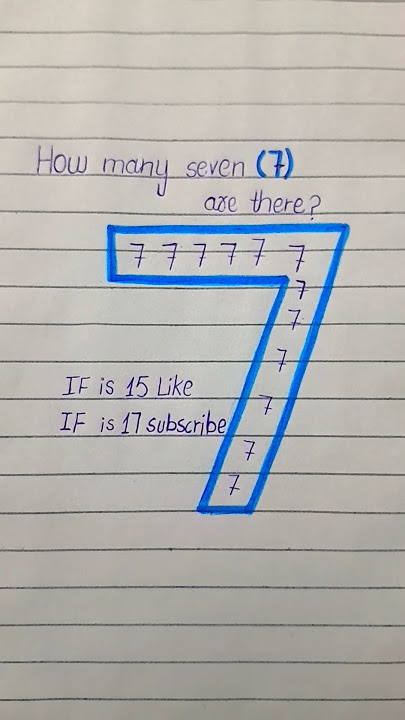 How many seven (7)
are there?
7 7 7 7 7 7
7
7
7
IF is 15 Like
7
IF is 17 subscribe
7
7